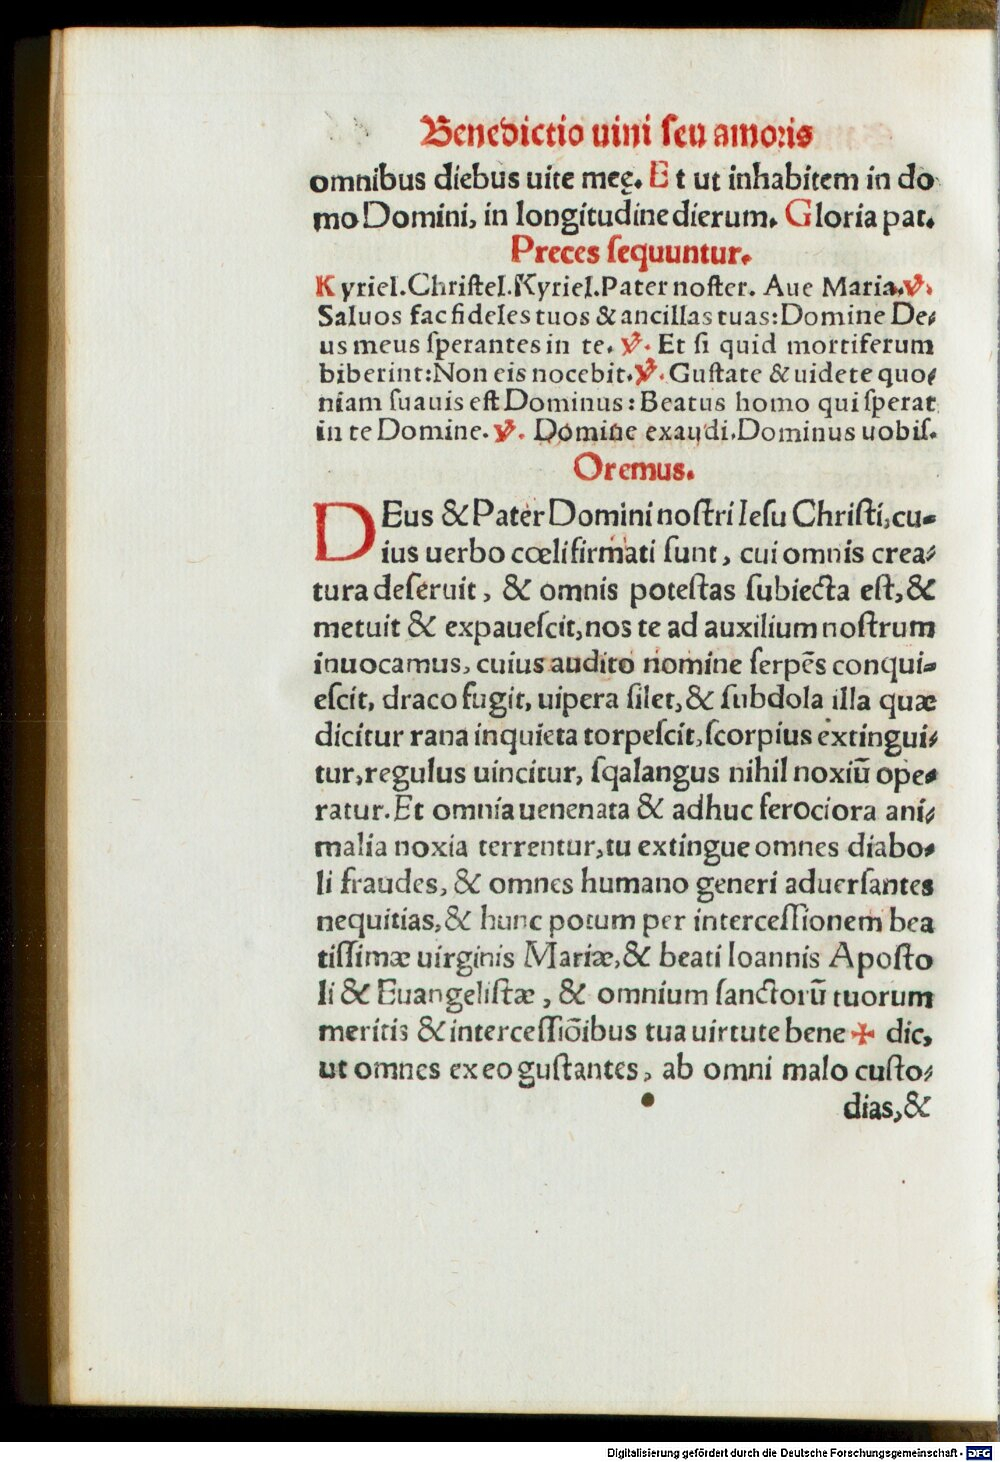 Benedictio uini ſeu amoris
omnibus diebus uite meę. Et ut inhabitem in do
mo Domini, in longitudine dierum. Gloria pat.
Preces ſequuntur.
Kyriel. Chriſtel. Kyriel. Pater noſter. Aue Maria. ℣.
Saluos fac fideles tuos & ancillas tuas: Domine De⸗
us meus ſperantes in te. ℣. Et ſi quid mortiferum
biberint: Non eis nocebit. ℣. Guſtate & uidete quo⸗
niam ſuauis eſt Dominus: Beatus homo qui ſperat
in te Domine. ℣. Domine exaudi. Dominus uobiſ.
Oremus.
DEus & Pater Domini noſtri Ieſu Chriſti, cu⸗
ius uerbo cœli firmati ſunt, cui omnis crea⸗
tura deſeruit, & omnis poteſtas ſubiecta eſt, &
metuit & expaueſcit, nos te ad auxilium noſtrum
inuocamus, cuius audito nomine ſerpēs conqui⸗
eſcit, draco fugit, uipera ſilet, & ſubdola illa quæ
dicitur rana inquieta torpeſcit, ſcorpius extingui⸗
tur, regulus uincitur, ſqalangus nihil noxiū ope⸗
ratur. Et omnia uenenata & adhuc ferociora ani⸗
malia noxia terrentur, tu extingue omnes diabo⸗
li fraudes, & omnes humano generi aduerſantes
nequitias, & hunc potum per interceſſionem bea
tiſſimæ uirginis Mariæ, & beati Ioannis Apoſto
li & Euangeliſtæ, & omnium ſanctorū tuorum
meritis & interceſſiōibus tua uirtute bene ✠ dic,
ut omnes ex eo guſtantes, ab omni malo cuſto⸗
dias, &
Digitalisierung gefördert durch die Deutsche Forschungsgemeinschaft - DFG